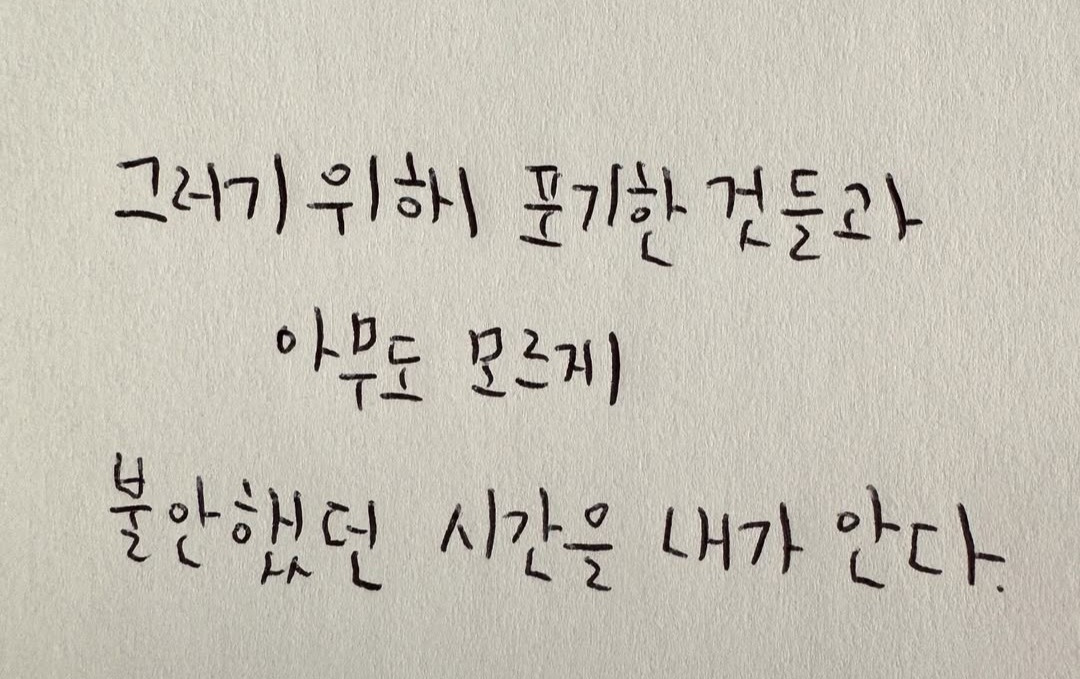 그러기 위해 포기한 것들과
아무도 모르게
불안했던 시간을 내가 안다.